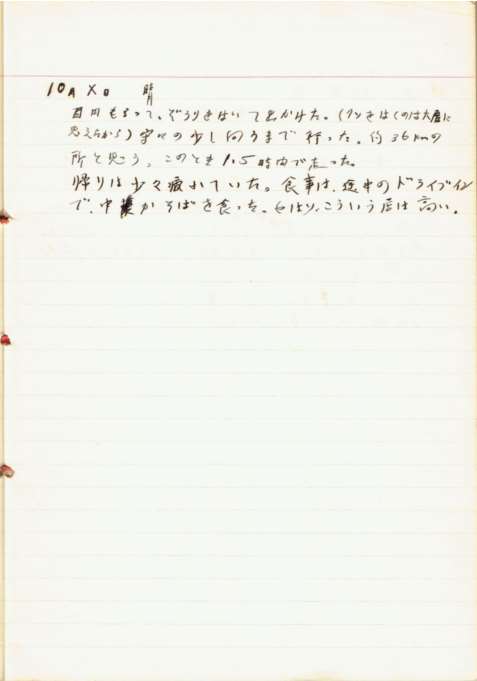 10月X日 晴
百円もらって、ぞうりをはいて出かけた。(クツをはくのは大層に
思えたから) 宇の少し向うまで行った。約36kmの
所と思う。このとき1.5時間で走った。
帰りは少々疲れていた。食事は、途中のドライブイン
で、中華かそばを食った。やはり、こういう店は高い。